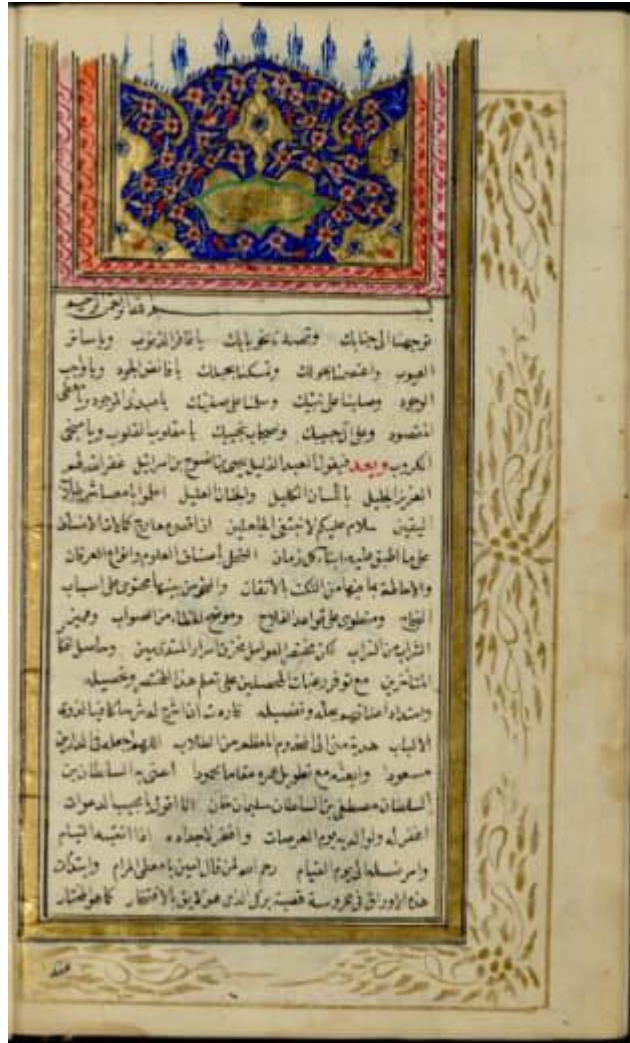 بسم الله الرحمن الرحيم
توجهنا الى جنابك وقصدنا نحو بابك يا غافر الذنوب ويا ساتر
العيوب واعتصمنا بحولك وتمسكنا بحبلك يا فائض الجود ويا واجب
الوجود وصلينا على نبيك وسلمنا على صفيك يا مبدئ الموجود ويا معطى
المقصود وعلى آل حبيبك وصحاب نجيبك يا مقلوب القلوب ويا منجى
الكروب وبعد فيقول العبد الذليل يحيى بن نصوح بن اسرائيل غفر الله لهم
العزيز الجليل باللسان الكليل والجنان العليل اعلموا يا معاشر طلاب
اليقين سلام عليكم لا نبتغى الجاهلين ان اقصى معارج كمالات الانسان
على ما اطبق عليه ابناء كل زمان التحلى بأصناف العلوم وانواع العرفان
والاحاطة بما فيها من النكت بالاتقان والنحو من بينها محتوى على اسباب
النجاة ومنطوى على قواعد الفلاح وموضح للخطاء من الصواب ومميز
الشراب من السراب لكن مختصر العوامل مخزن اسرار المبتدئين وحاصل
المتأخرين مع توفر رغبات المحصلين على تعلم هذا المختصر وتحصيله
وامتداد اعناقهم بحله وتفصيله فاردت ان اشرح له شرحا كافيا لذوى
الالباب هدية منى الى المخدوم المعظم من الطلاب اللهم اجعله فى الدارين
مسعودا وابعثه مع تطويل عمره مقاما محمودا اعنى به السلطان بن
السلطان مصطفى بن السلطان سليمان خان انا اقول يا مجيب الدعوات
اغفر له ولوالديه يوم العرصات واغفر لاجداده اذا انتبه النيام
وامر نسله الى يوم القيام رحم الله لمن قال امين يا معطى المرام وابتدأت
هذه الاوراق فى محروسة قصبة بركى الذى هو لايق بالافتخار كما هو مختار